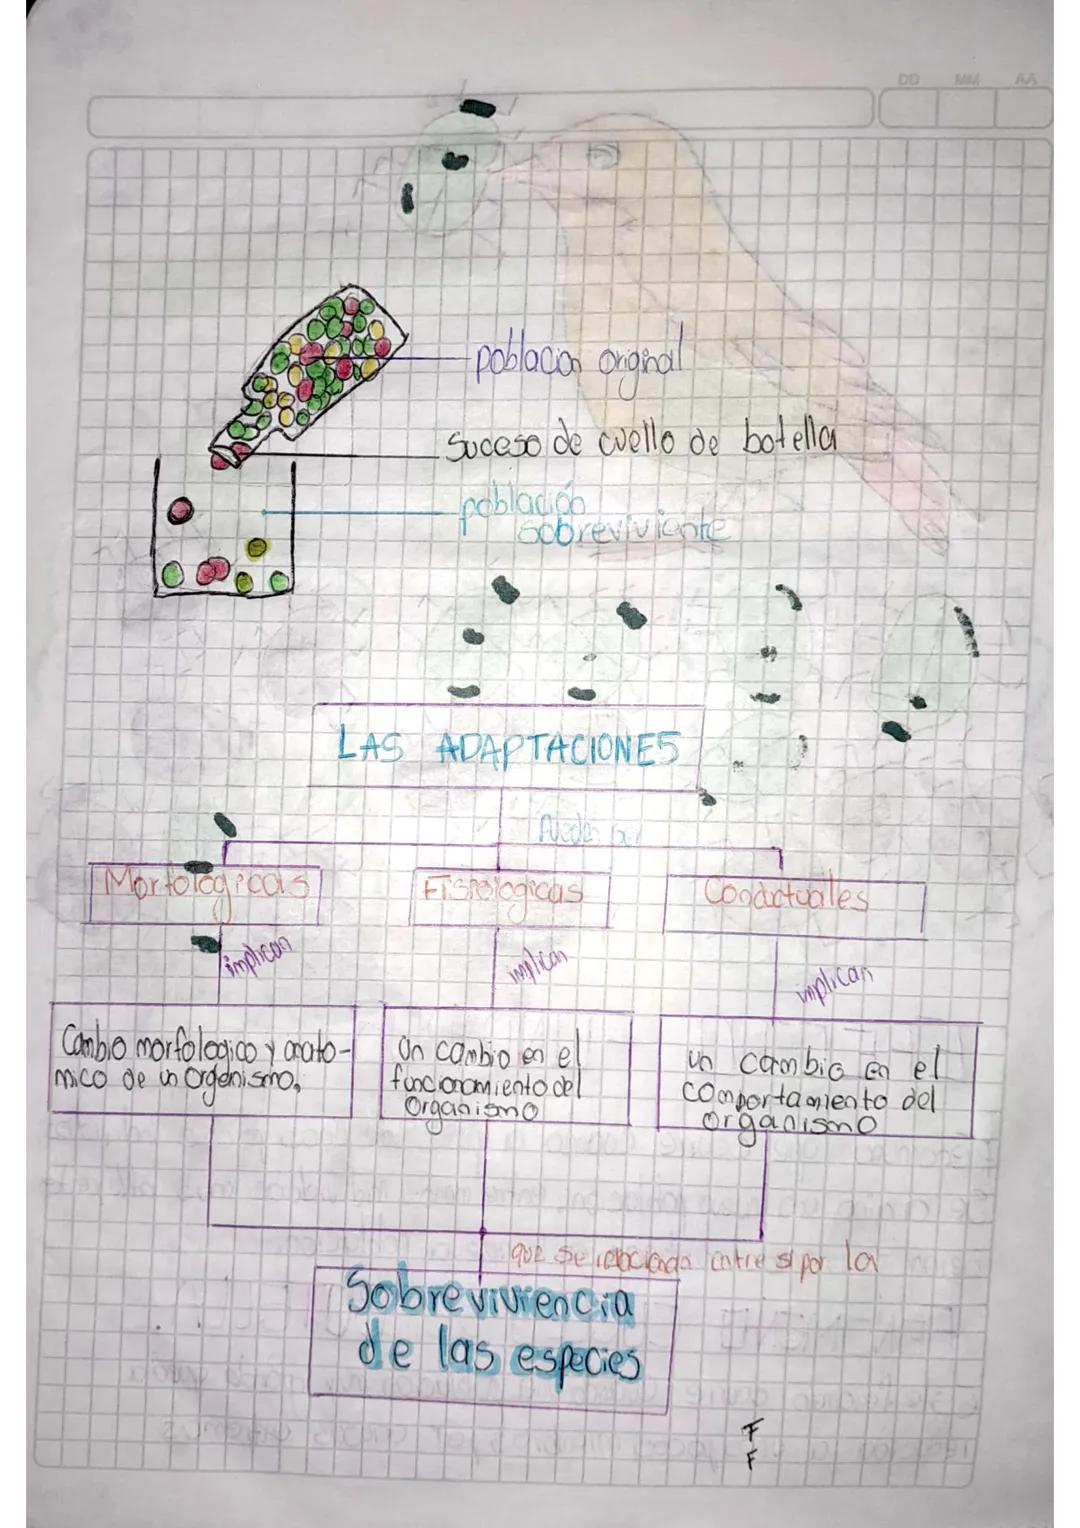 DD MM AA
poblacion original
Suceso de cuello de botella
población
sobreviviente
LAS ADAPTACIONES
Pueden ser
Morfologicas
Fisiologicas
Conductuales
implican
implican
implican
Cambio morfologico y anato-
mico de un organismo,
Un cambio en el
funcionamiento del
organismo
un cambio en el
comportamiento del
organismo
que se relacionan entre si por la
Sobrevivencia
de las especies
F
F